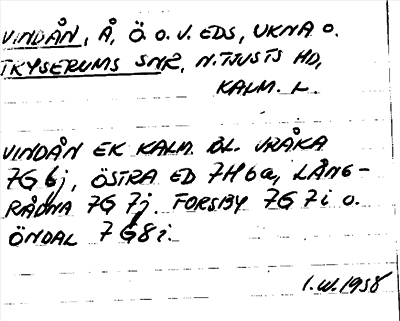 VINDÅN, Å, Ö. O. V. EDS, UKNA O.
TRYSERUMS SNR, N. TJUSTS HD,
KALM. L.
VINDÅN EK KALM. BL. VRÅKA
7G 6j, ÖSTRA ED 7H 6a, LÅNG-
RÅDNA 7G 7j. FORSBY 7G 7i O.
ÖNDAL 7G8i.
1958